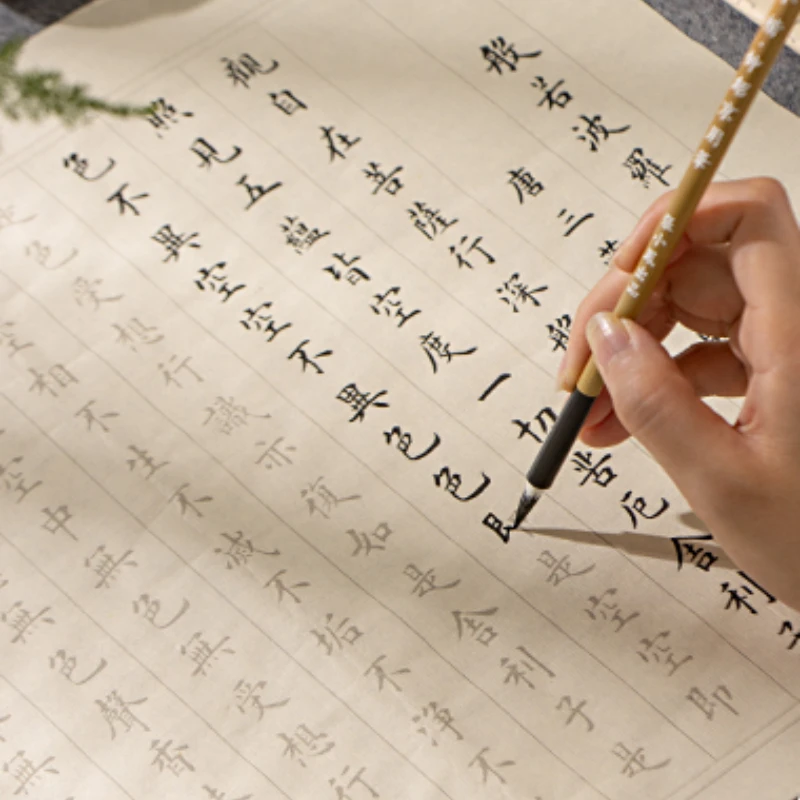 般若波羅
唐三
觀自在菩薩行深般
照見五蘊皆空度一切苦厄舍利子
色不異空空不異色色即是空空即
是色受想行識亦復如是舍利子是
空相不生不滅不垢不淨不
空中無色無受想行
無色聲香
無